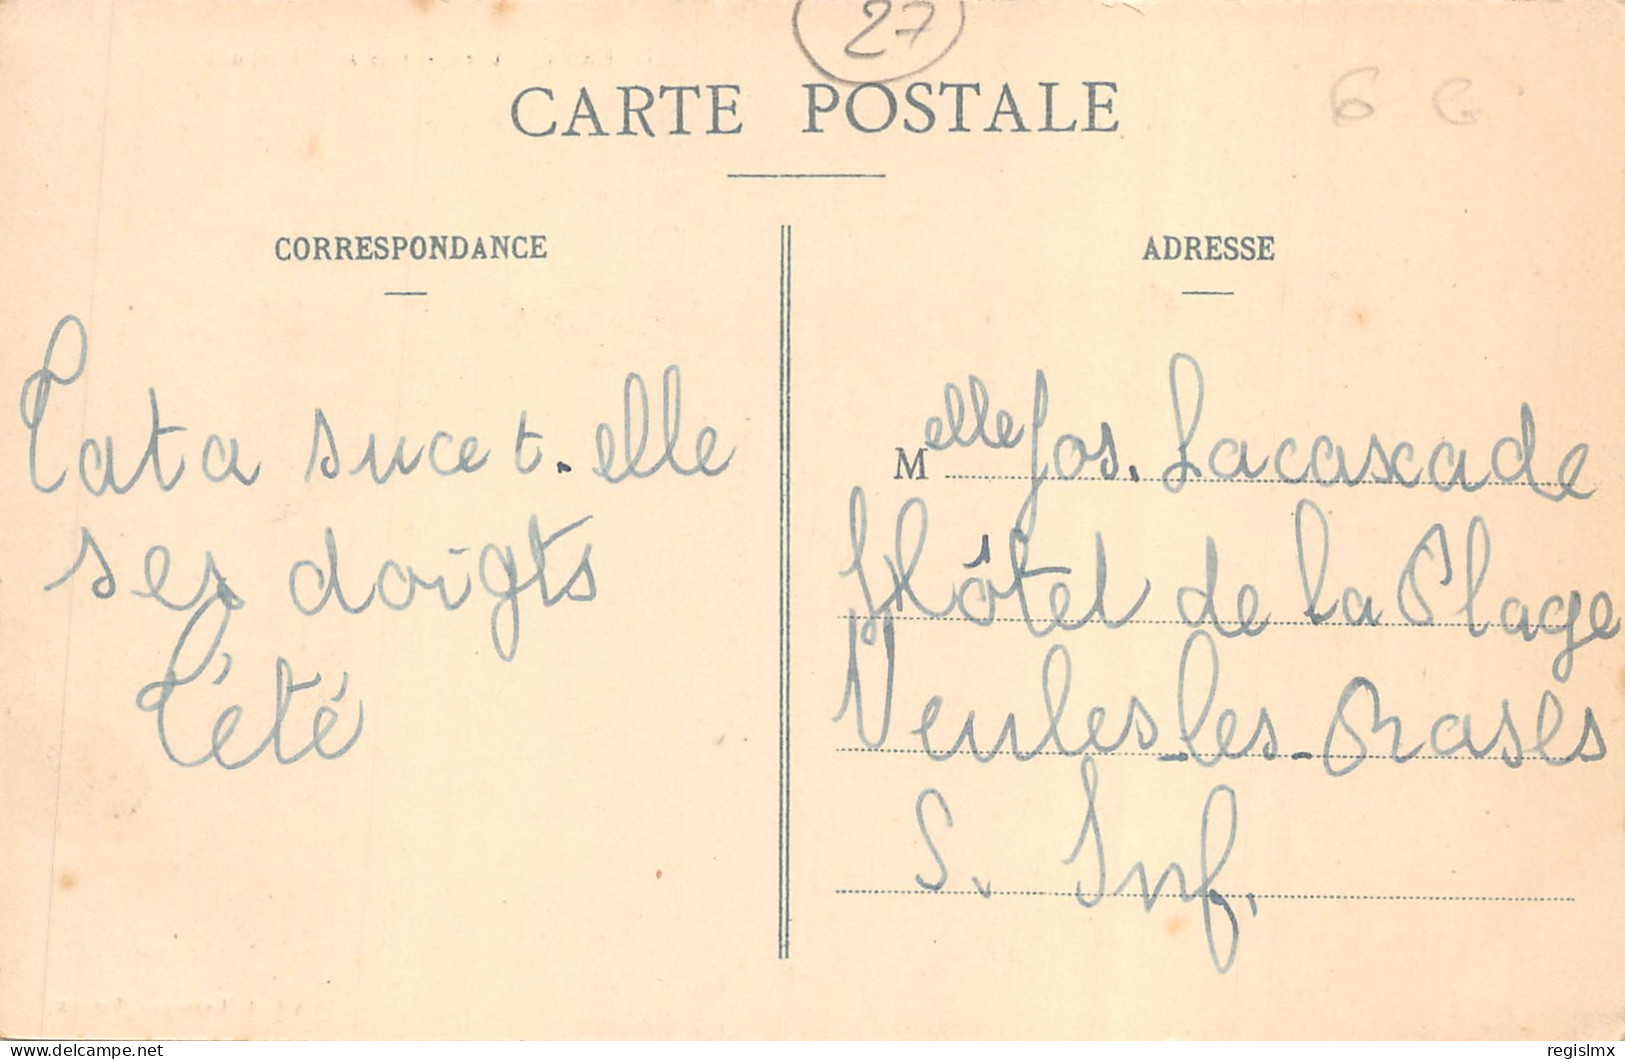 27
CARTE POSTALE
6 G
CORRESPONDANCE
Tata suce t-elle
ses doigts
l'été
ADRESSE
Melle Jos. Lacascade
Hôtel de la Plage
Veules-les-Roses
S. Inf.
www.delcampe.net
regislmx